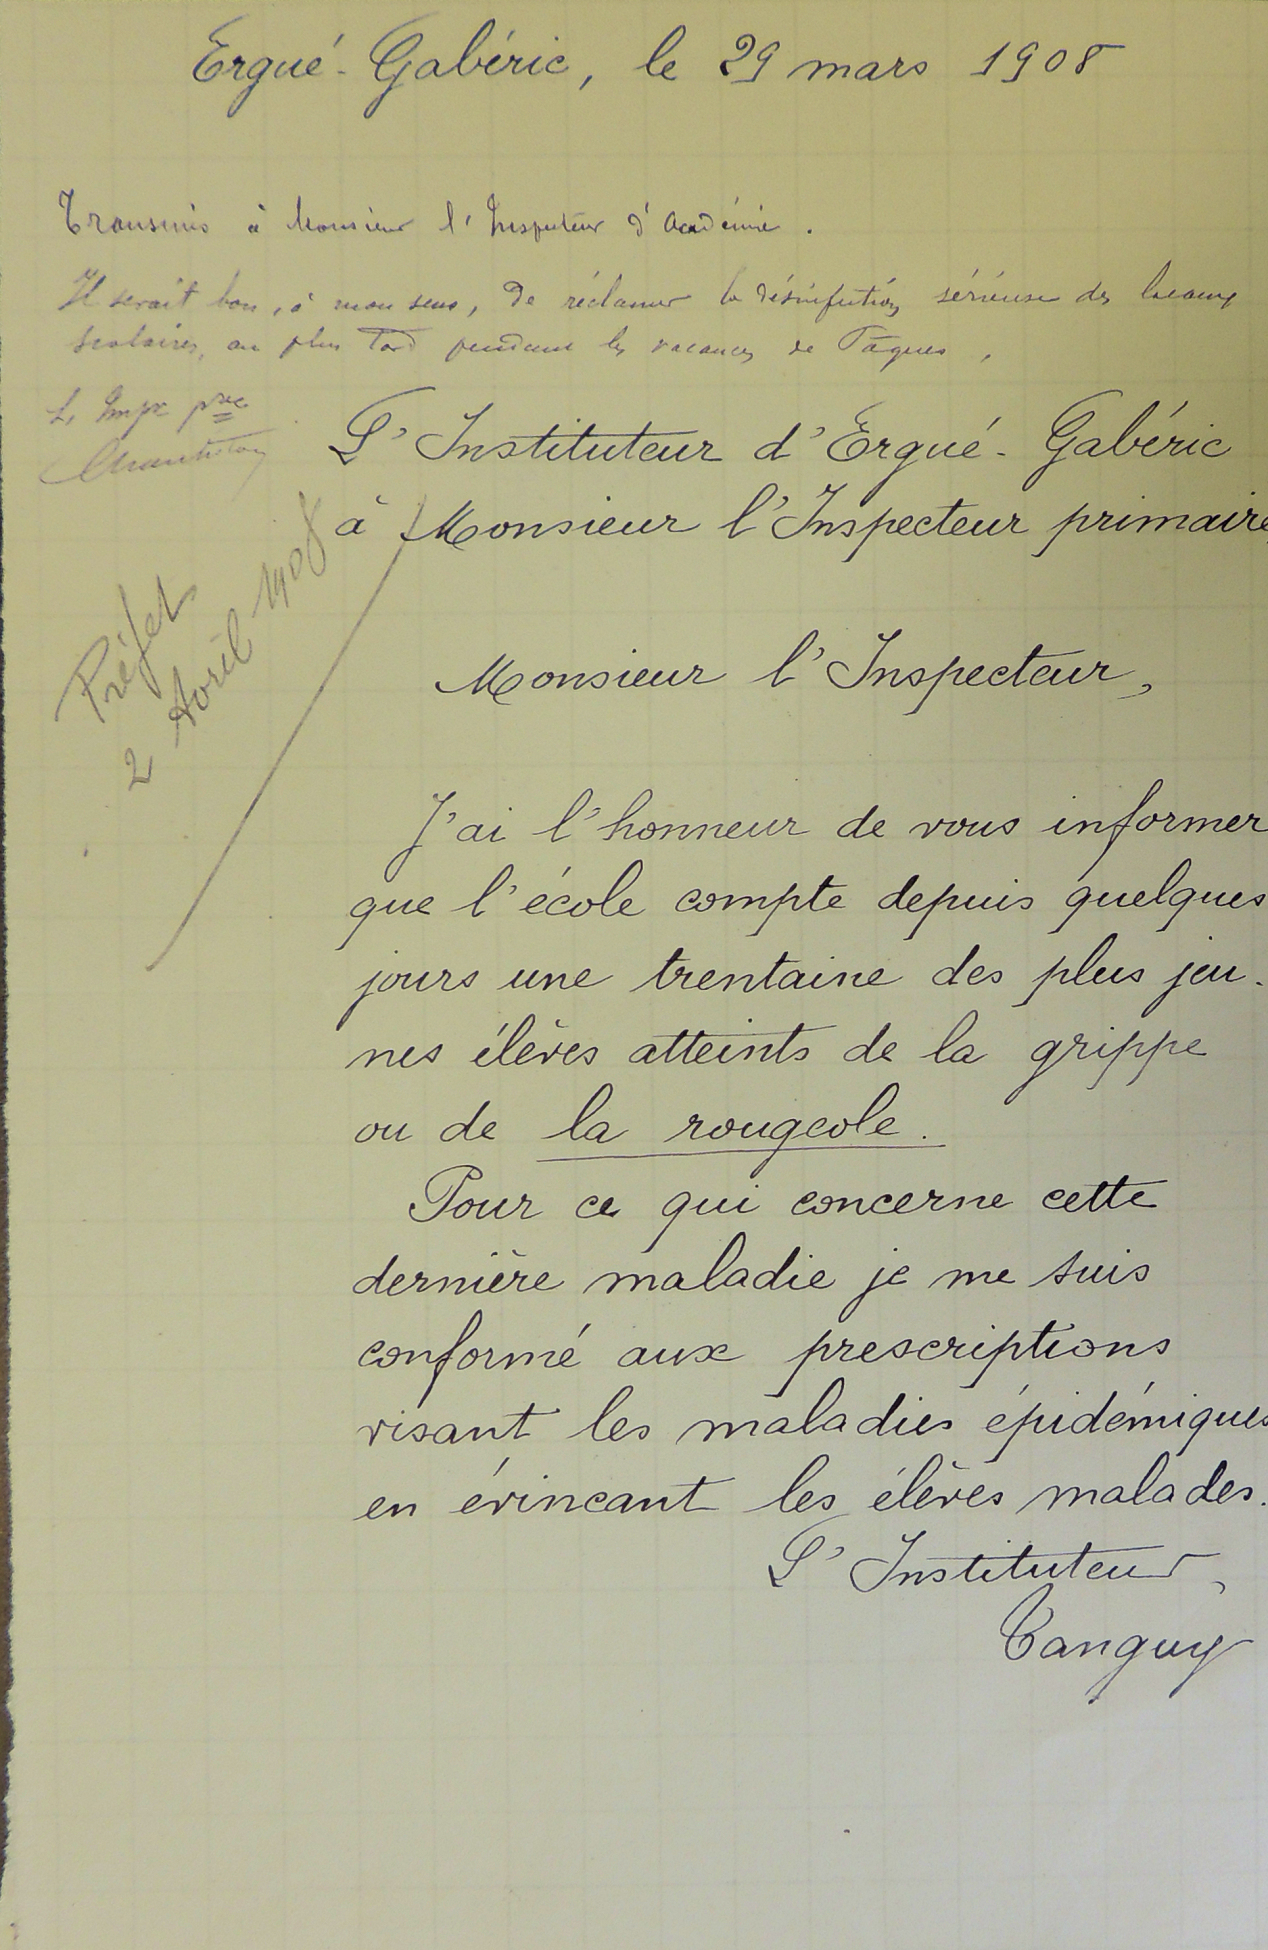 Ergué-Gabéric, le 29 mars 1908
Transmis à Monsieur l'Inspecteur d'Académie.
Il serait bon, à mon sens, de réclamer la désinfection sérieuse des locaux
scolaires, au plus tard pendant les vacances de Pâques.
L'Inspr pre
L'Instituteur d'Ergué-Gabéric
à Monsieur l'Inspecteur primaire,
Préfet
2 Avril 1908
Monsieur l'Inspecteur,
J'ai l'honneur de vous informer
que l'école compte depuis quelques
jours une trentaine des plus jeu-
nes élèves atteints de la grippe
ou de la rougeole.
Pour ce qui concerne cette
dernière maladie je me suis
conformé aux prescriptions
visant les maladies épidémiques
en évincant les élèves malades.
L'Instituteur,
Tanguy